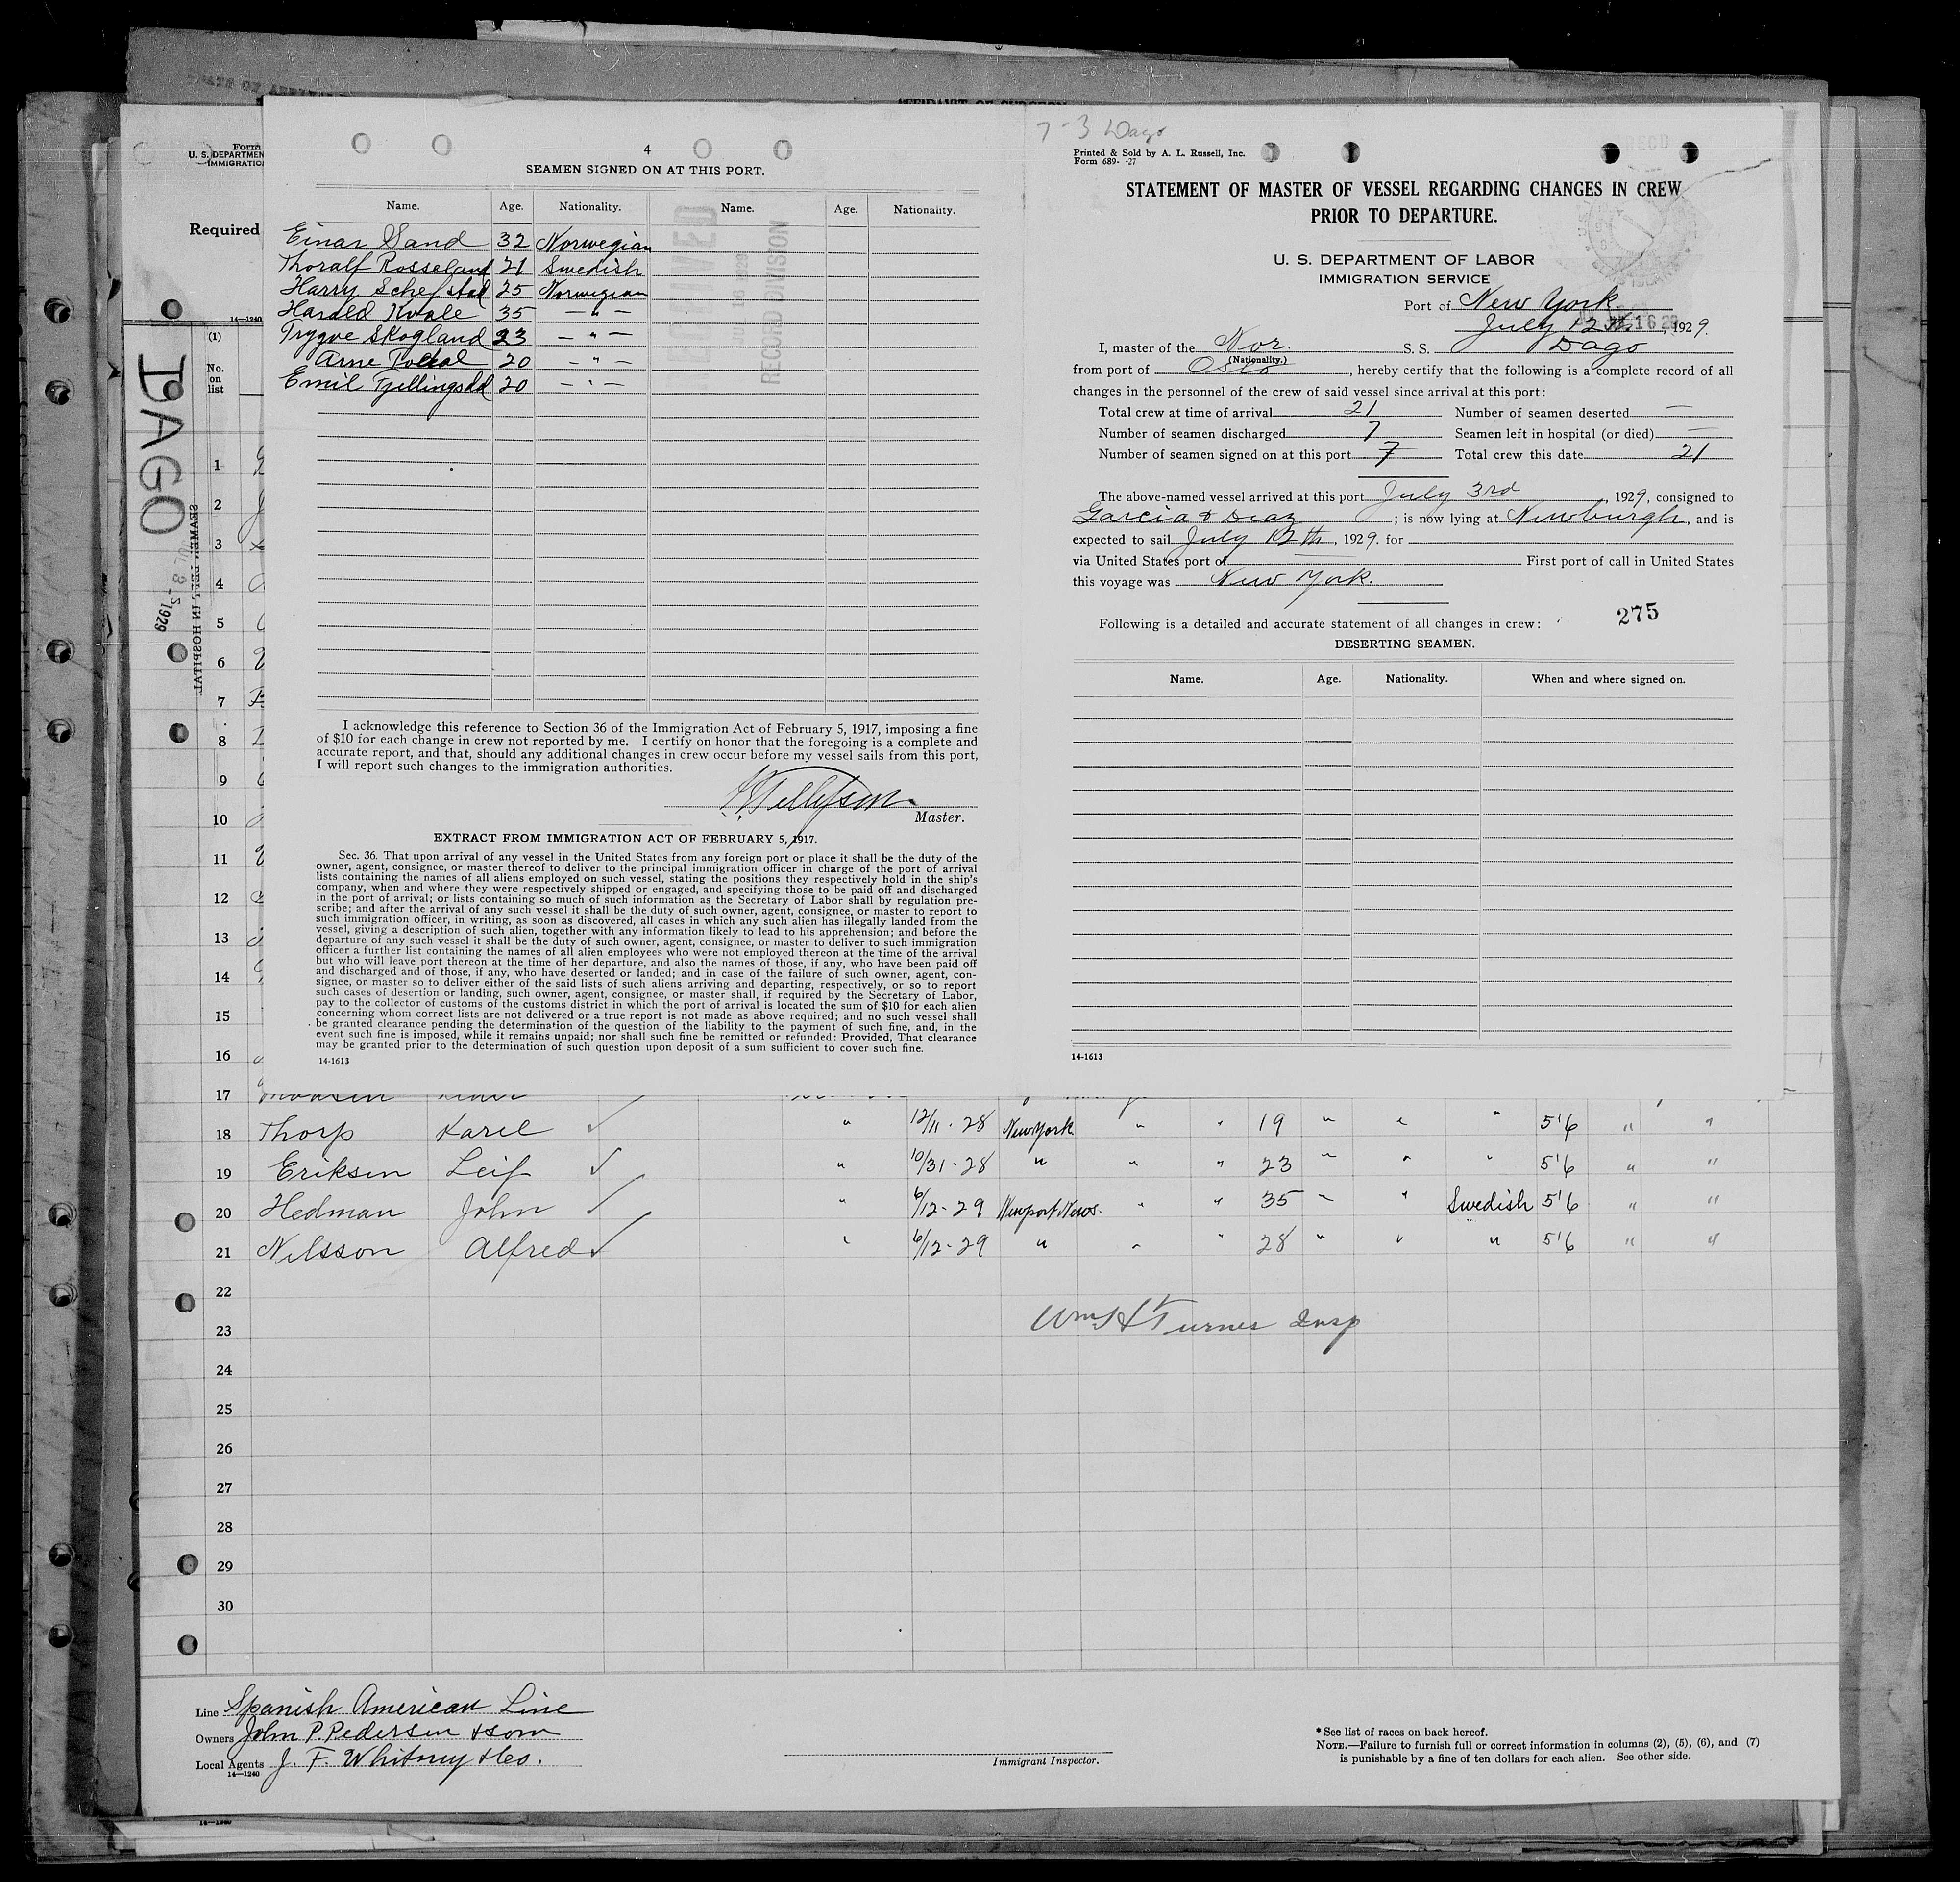 4
SEAMEN SIGNED ON AT THIS PORT.
Name. Age. Nationality. Name. Age. Nationality.
Einar Sand 32 Norwegian
Thoralf Rosseland 21 Swedish
Harry Schefstad 25 Norwegian
Harald Kvale 35 — " —
Trygve Skogland 23 — " —
Arne 20 — " —
Emil 20 — " —
RECEIVED
JUL 16 1929
RECORD DIVISION
I acknowledge this reference to Section 36 of the Immigration Act of February 5, 1917, imposing a fine
of $10 for each change in crew not reported by me. I certify on honor that the foregoing is a complete and
accurate report, and that, should any additional changes in crew occur before my vessel sails from this port,
I will report such changes to the immigration authorities.
Master.
EXTRACT FROM IMMIGRATION ACT OF FEBRUARY 5, 1917.
Sec. 36. That upon arrival of any vessel in the United States from any foreign port or place it shall be the duty of the
owner, agent, consignee, or master thereof to deliver to the principal immigration officer in charge of the port of arrival
lists containing the names of all aliens employed on such vessel, stating the positions they respectively hold in the ship's
company, when and where they were respectively shipped or engaged, and specifying those to be paid off and discharged
in the port of arrival; or lists containing so much of such information as the Secretary of Labor shall by regulation pre-
scribe; and after the arrival of any such vessel it shall be the duty of such owner, agent, consignee, or master to report to
such immigration officer, in writing, as soon as discovered, all cases in which any such alien has illegally landed from the
vessel, giving a description of such alien, together with any information likely to lead to his apprehension; and before the
departure of any such vessel it shall be the duty of such owner, agent, consignee, or master to deliver to such immigration
officer a further list containing the names of all alien employees who were not employed thereon at the time of the arrival
but who will leave port thereon at the time of her departure, and also the names of those, if any, who have been paid off
and discharged and of those, if any, who have deserted or landed; and in case of the failure of such owner, agent, con-
signee, or master so to deliver either of the said lists of such aliens arriving and departing, respectively, or so to report
such cases of desertion or landing, such owner, agent, consignee, or master shall, if required by the Secretary of Labor,
pay to the collector of customs of the customs district in which the port of arrival is located the sum of $10 for each alien
concerning whom correct lists are not delivered or a true report is not made as above required; and no such vessel shall
be granted clearance pending the determination of the question of the liability to the payment of such fine, and, in the
event such fine is imposed, while it remains unpaid; nor shall such fine be remitted or refunded: Provided, That clearance
may be granted prior to the determination of such question upon deposit of a sum sufficient to cover such fine.
14-1613
7-3 Dago
Printed & Sold by A. L. Russell, Inc.
Form 689- -27
STATEMENT OF MASTER OF VESSEL REGARDING CHANGES IN CREW
PRIOR TO DEPARTURE.
U. S. DEPARTMENT OF LABOR
IMMIGRATION SERVICE
Port of New York
July 12th, 1929.
I, master of the Nor. S. S. Dago
(Nationality.)
from port of Oslo, hereby certify that the following is a complete record of all
changes in the personnel of the crew of said vessel since arrival at this port:
Total crew at time of arrival 21 Number of seamen deserted —
Number of seamen discharged 7 Seamen left in hospital (or died) —
Number of seamen signed on at this port 7 Total crew this date 21
The above-named vessel arrived at this port July 3rd, 1929, consigned to
Garcia & Diaz; is now lying at Newburgh, and is
expected to sail July 12th, 1929. for
via United States port of — First port of call in United States
this voyage was New York.
Following is a detailed and accurate statement of all changes in crew:
275
DESERTING SEAMEN.
Name. Age. Nationality. When and where signed on.
14-1613
Form
U. S. DEPARTMEN
IMMIGRATIO
Required
14-1240
(1)
No.
on
list
DAGO
SEAMEN LEFT IN HOSPITAL
1
2
3
4
5
6
7
8
9
10
11
12
13
14
15
16
17
18 Thorp Karel ✓ " 12/11-28 New York " " 19 " " " 5'6 " "
19 Eriksen Leif ✓ " 10/31-28 " " " 23 " " " 5'6 " "
20 Hedman John ✓ " 6/12-29 Newport News. " " 35 " " Swedish 5'6 " "
21 Nilsson Alfred ✓ " 6/12-29 " " " 28 " " " 5'6 " "
22
23
Wm H Turner Insp
24
25
26
27
28
29
30
Line Spanish American Line
Owners John P. Pedersen & son
Local Agents J. F. Whitney & Co.
14—1240
Immigrant Inspector.
* See list of races on back hereof.
NOTE.—Failure to furnish full or correct information in columns (2), (5), (6), and (7)
is punishable by a fine of ten dollars for each alien. See other side.